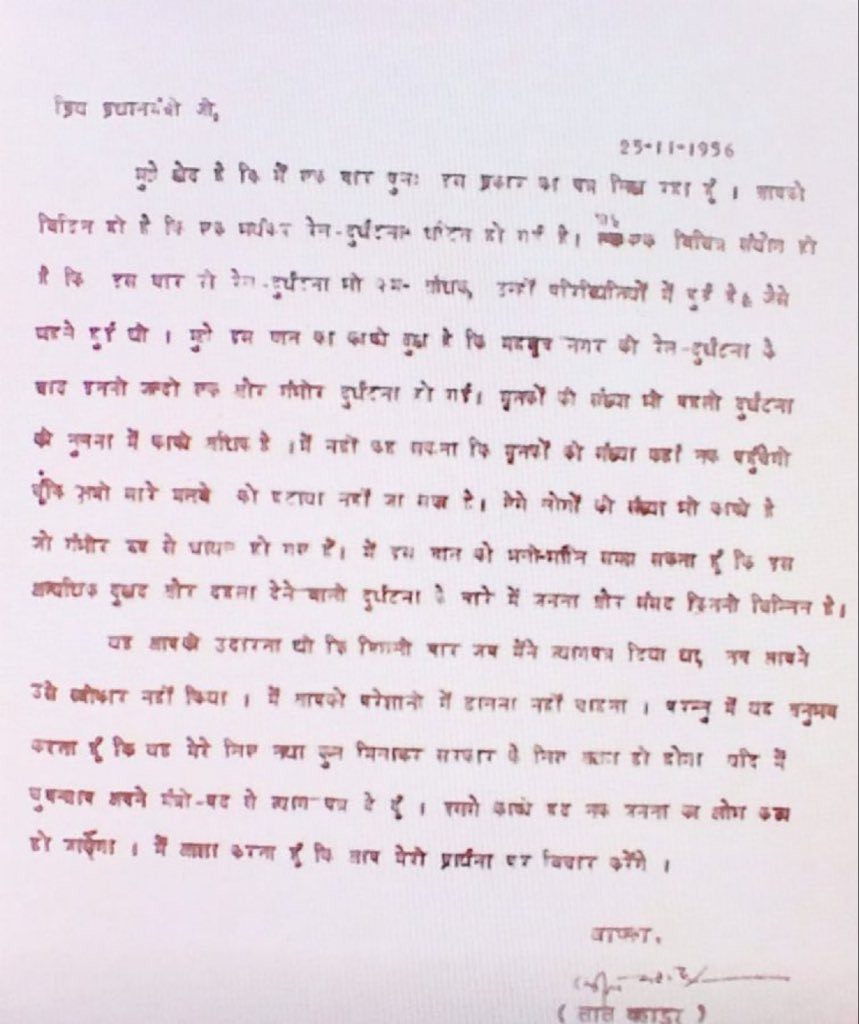 प्रिय प्रधानमंत्री जी,
25-11-1956
मुझे खेद है कि मैं एक बार पुनः इस प्रकार का पत्र लिख रहा हूँ । आपको
विदित ही है कि एक भयंकर रेल-दुर्घटना घटित हो गई है। यह एक विचित्र संयोग ही
है कि इस बार भी रेल-दुर्घटना भी कम- अधिक, उन्हीं परिस्थितियों में हुई है, जैसे
पहले हुई थी । मुझे इस बात का काफी दुख है कि महबूब नगर की रेल-दुर्घटना के
बाद इतनी जल्दी एक और गंभीर दुर्घटना हो गई। मृतकों की संख्या भी पहली दुर्घटना
की तुलना में काफी अधिक है । मैं नहीं कह सकता कि मृतकों की संख्या कहां तक पहुंचेगी
चूंकि अभी सारे मलबे को हटाया नहीं जा सका है। ऐसे लोगों की संख्या भी काफी है
जो गंभीर रूप से घायल हो गए हैं। मैं इस बात को भली-भांति समझ सकता हूँ कि इस
अत्यधिक दुखद और दहला देने वाली दुर्घटना के बारे में जनता और संसद कितनी चिन्तित है।
यह आपकी उदारता थी कि पिछली बार जब मैंने त्यागपत्र दिया था, तब आपने
उसे स्वीकार नहीं किया । मैं आपको परेशानी में डालना नहीं चाहता । परन्तु मैं यह अनुभव
करता हूँ कि यह मेरे लिए तथा कुल मिलाकर सरकार के लिए अच्छा ही होगा यदि मैं
चुपचाप अपने मंत्री-पद से त्याग पत्र दे दूँ । इससे काफी हद तक जनता का क्षोभ कम
हो जाएगा । मैं आशा करता हूँ कि आप मेरी प्रार्थना पर विचार करेंगे ।
आपका,
( लाल बहादुर )